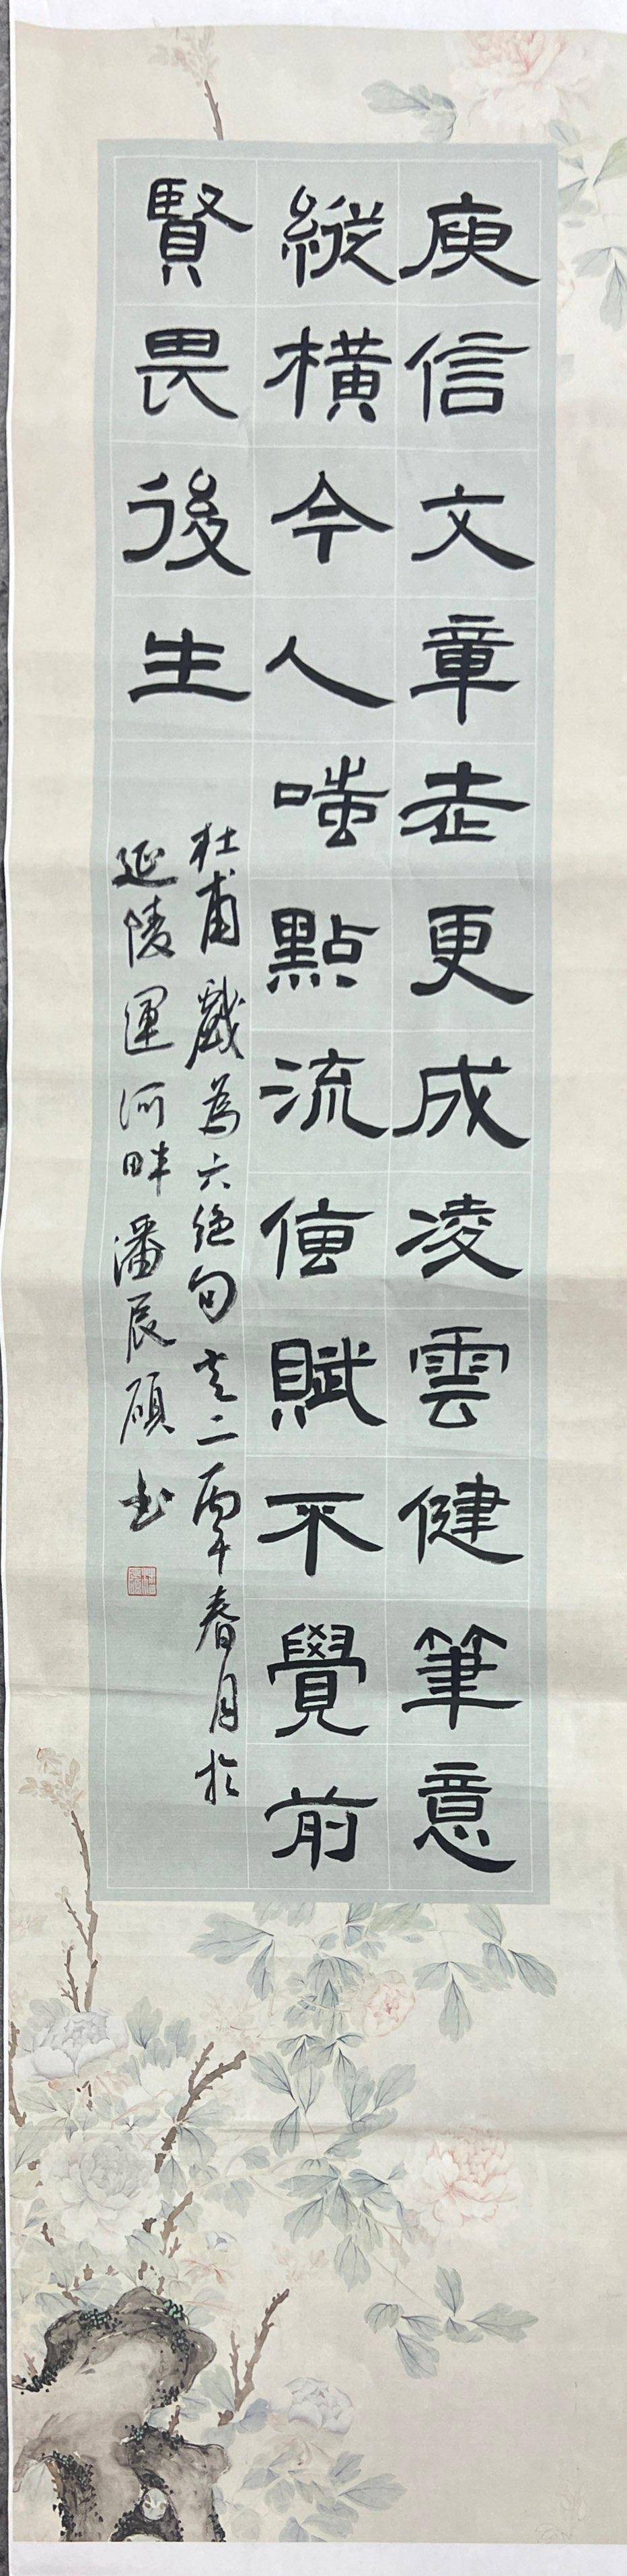 庾信文章老更成凌雲健筆意
縱橫今人嗤點流傳賦不覺前
賢畏後生
杜甫戲為六絕句之二丙午春月於
延陵運河畔潘辰碩书